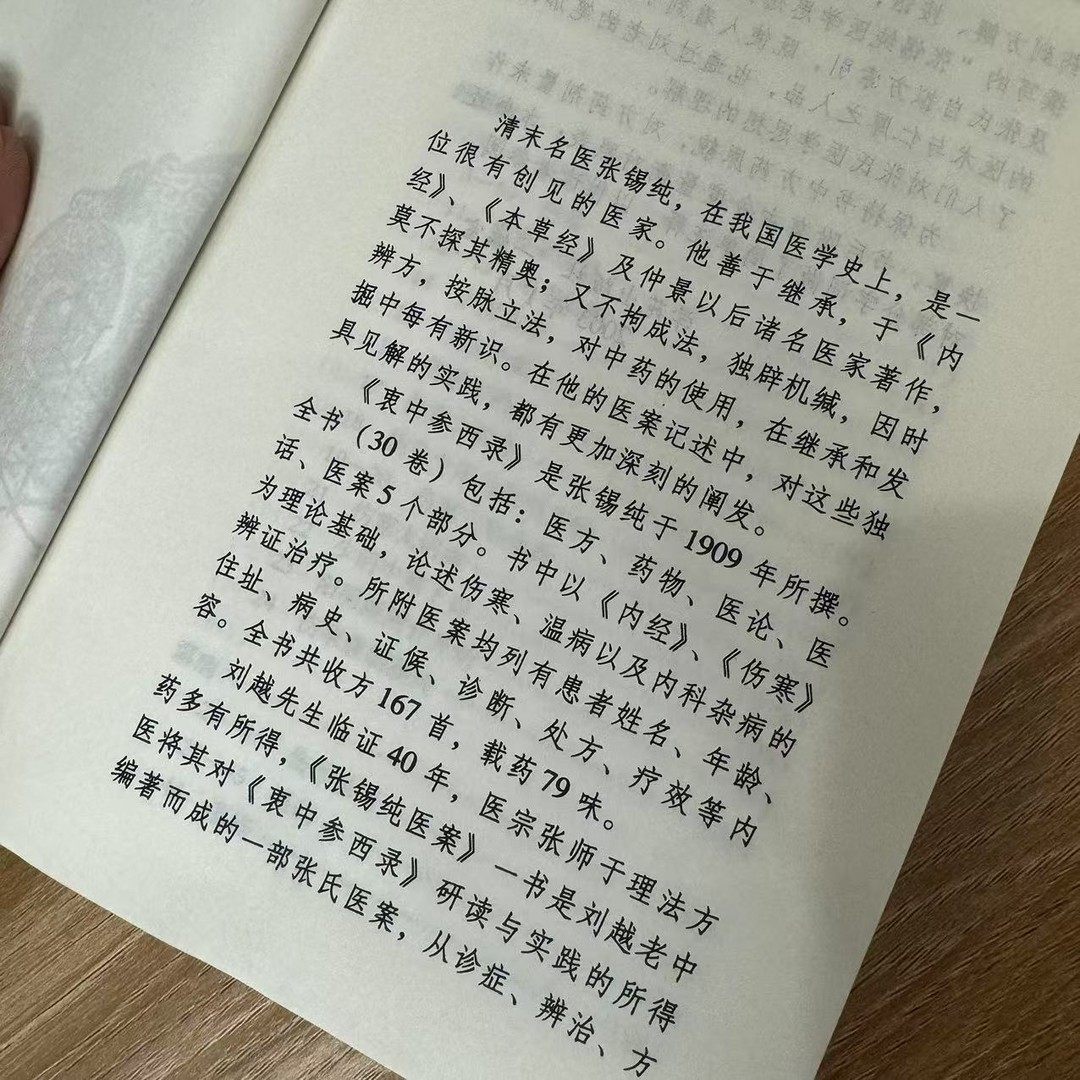 清末名医张锡纯，在我国医学史上，是一
位很有创见的医家。他善于继承，于《内
经》、《本草经》及仲景以后诸名医家著作，
莫不探其精奥；又不拘成法，独辟机缄，因时
辨方，按脉立法，对中药的使用，在继承和发
掘中每有新识。在他的医案记述中，对这些独
具见解的实践，都有更加深刻的阐发。
《衷中参西录》是张锡纯于1909年所撰。
全书（30卷）包括：医方、药物、医论、医
话、医案5个部分。书中以《内经》、《伤寒》
为理论基础，论述伤寒、温病以及内科杂病的
辨证治疗。所附医案均列有患者姓名、年龄、
住址、病史、证候、诊断、处方、疗效等内
容。全书共收方167首，载药79味。
刘越先生临证40年，医宗张师于理法方
药多有所得，《张锡纯医案》一书是刘越老中
医将其对《衷中参西录》研读与实践的所得
编著而成的一部张氏医案，从诊症、辨治、方